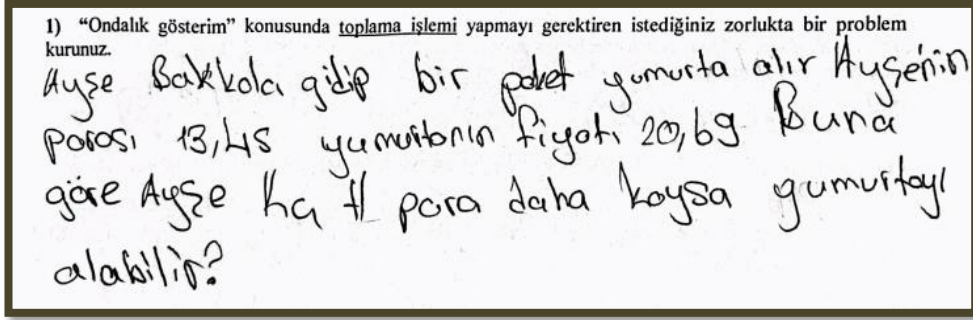 1) “Ondalık gösterim” konusunda toplama işlemi yapmayı gerektiren istediğiniz zorlukta bir problem
kurunuz.
Ayşe Bakkola gidip bir paket yumurta alır Ayşe'nin
parası 13,45 yumurtanın fiyatı 20,69 Buna
göre Ayşe Kq tl para daha koysa yumurtayı
alabilir?